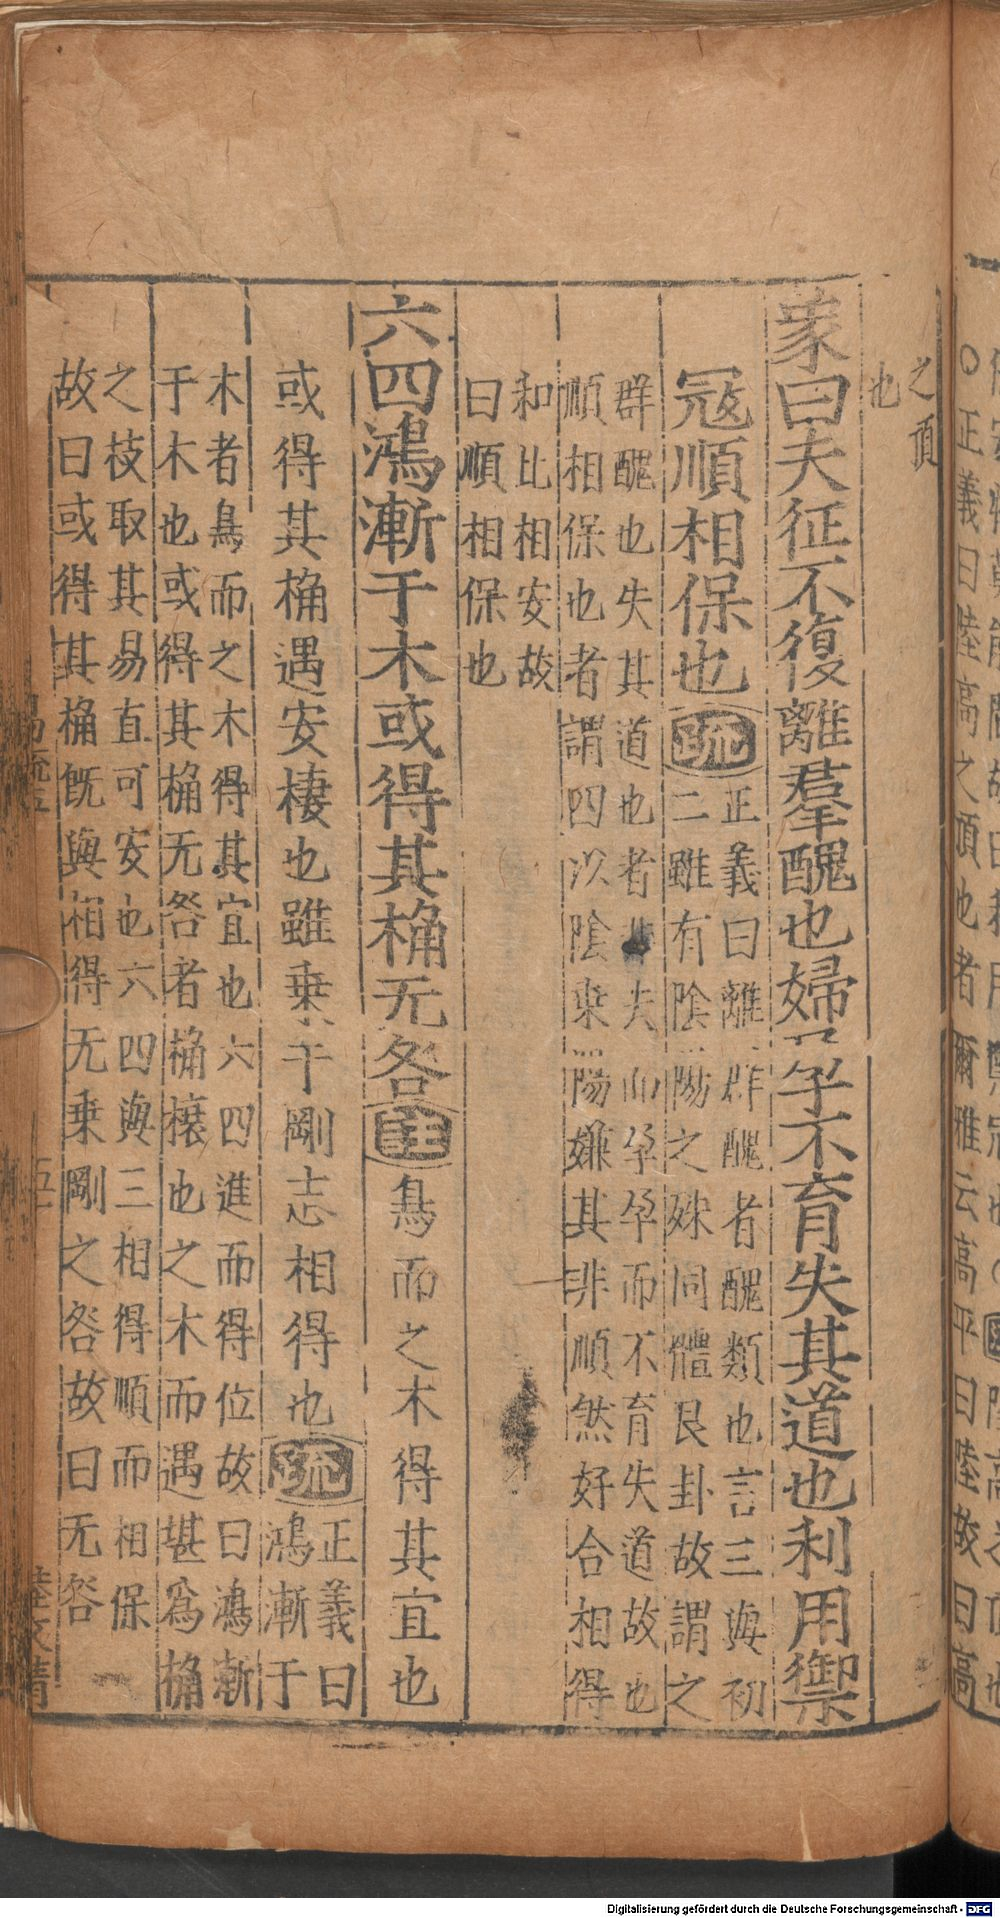 之頂
也
象曰夫征不復離羣醜也婦孕不育失其道也利用禦
寇順相保也疏
正義曰離群醜者醜類也言三與初
二雖有陰陽之殊同體艮卦故謂之
群醜也失其道也者非夫而孕孕而不育失道故也
順相保也者謂四以陰乘陽嫌其非順然好合相得
和比相安故
曰順相保也
六四鴻漸于木或得其桷无咎注鳥而之木得其宜也
或得其桷遇安棲也雖乗于剛志相得也疏
正義曰
鴻漸于
木者鳥而之木得其宜也六四進而得位故曰鴻漸
于木也或得其桷无咎者桷榱也之木而遇堪爲桷
之枝取其易直可安也六四與三相得順而相保
故曰或得其桷既與相得无乗剛之咎故曰无咎
正義曰陸高之頂也者爾雅云高平曰陸故曰高
Digitalisierung gefördert durch die Deutsche Forschungsgemeinschaft - DFG